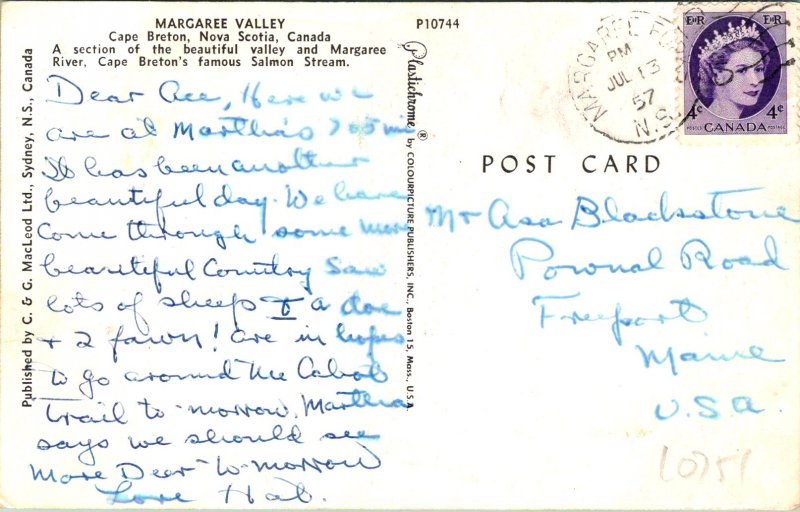 MARGAREE VALLEY
Cape Breton, Nova Scotia, Canada
A section of the beautiful valley and Margaree
River, Cape Breton's famous Salmon Stream.
P10744
Published by C. & G. MacLeod Ltd., Sydney, N.S., Canada
Plastichrome ® by COLOURPICTURE PUBLISHERS, INC., Boston 15, Mass., U.S.A.
Dear Ace, Here we
are at Martha's 705 mi
It has been another
beautiful day. We have
come through some more
beautiful Country Saw
lots of sheep & a doe
& 2 fawn! are in hopes
to go around the Cabot
trail to-morrow. Martha
says we should see
More Dear to-morrow
Love Hat.
MARGAREE
PM
JUL 13
57
N.S.
EⅡR EⅡR
4¢ 4¢
POSTES POSTAGE
CANADA
POST CARD
Mr Asa Blackstone
Pownal Road
Freeport
Maine
U.S.A.
10751